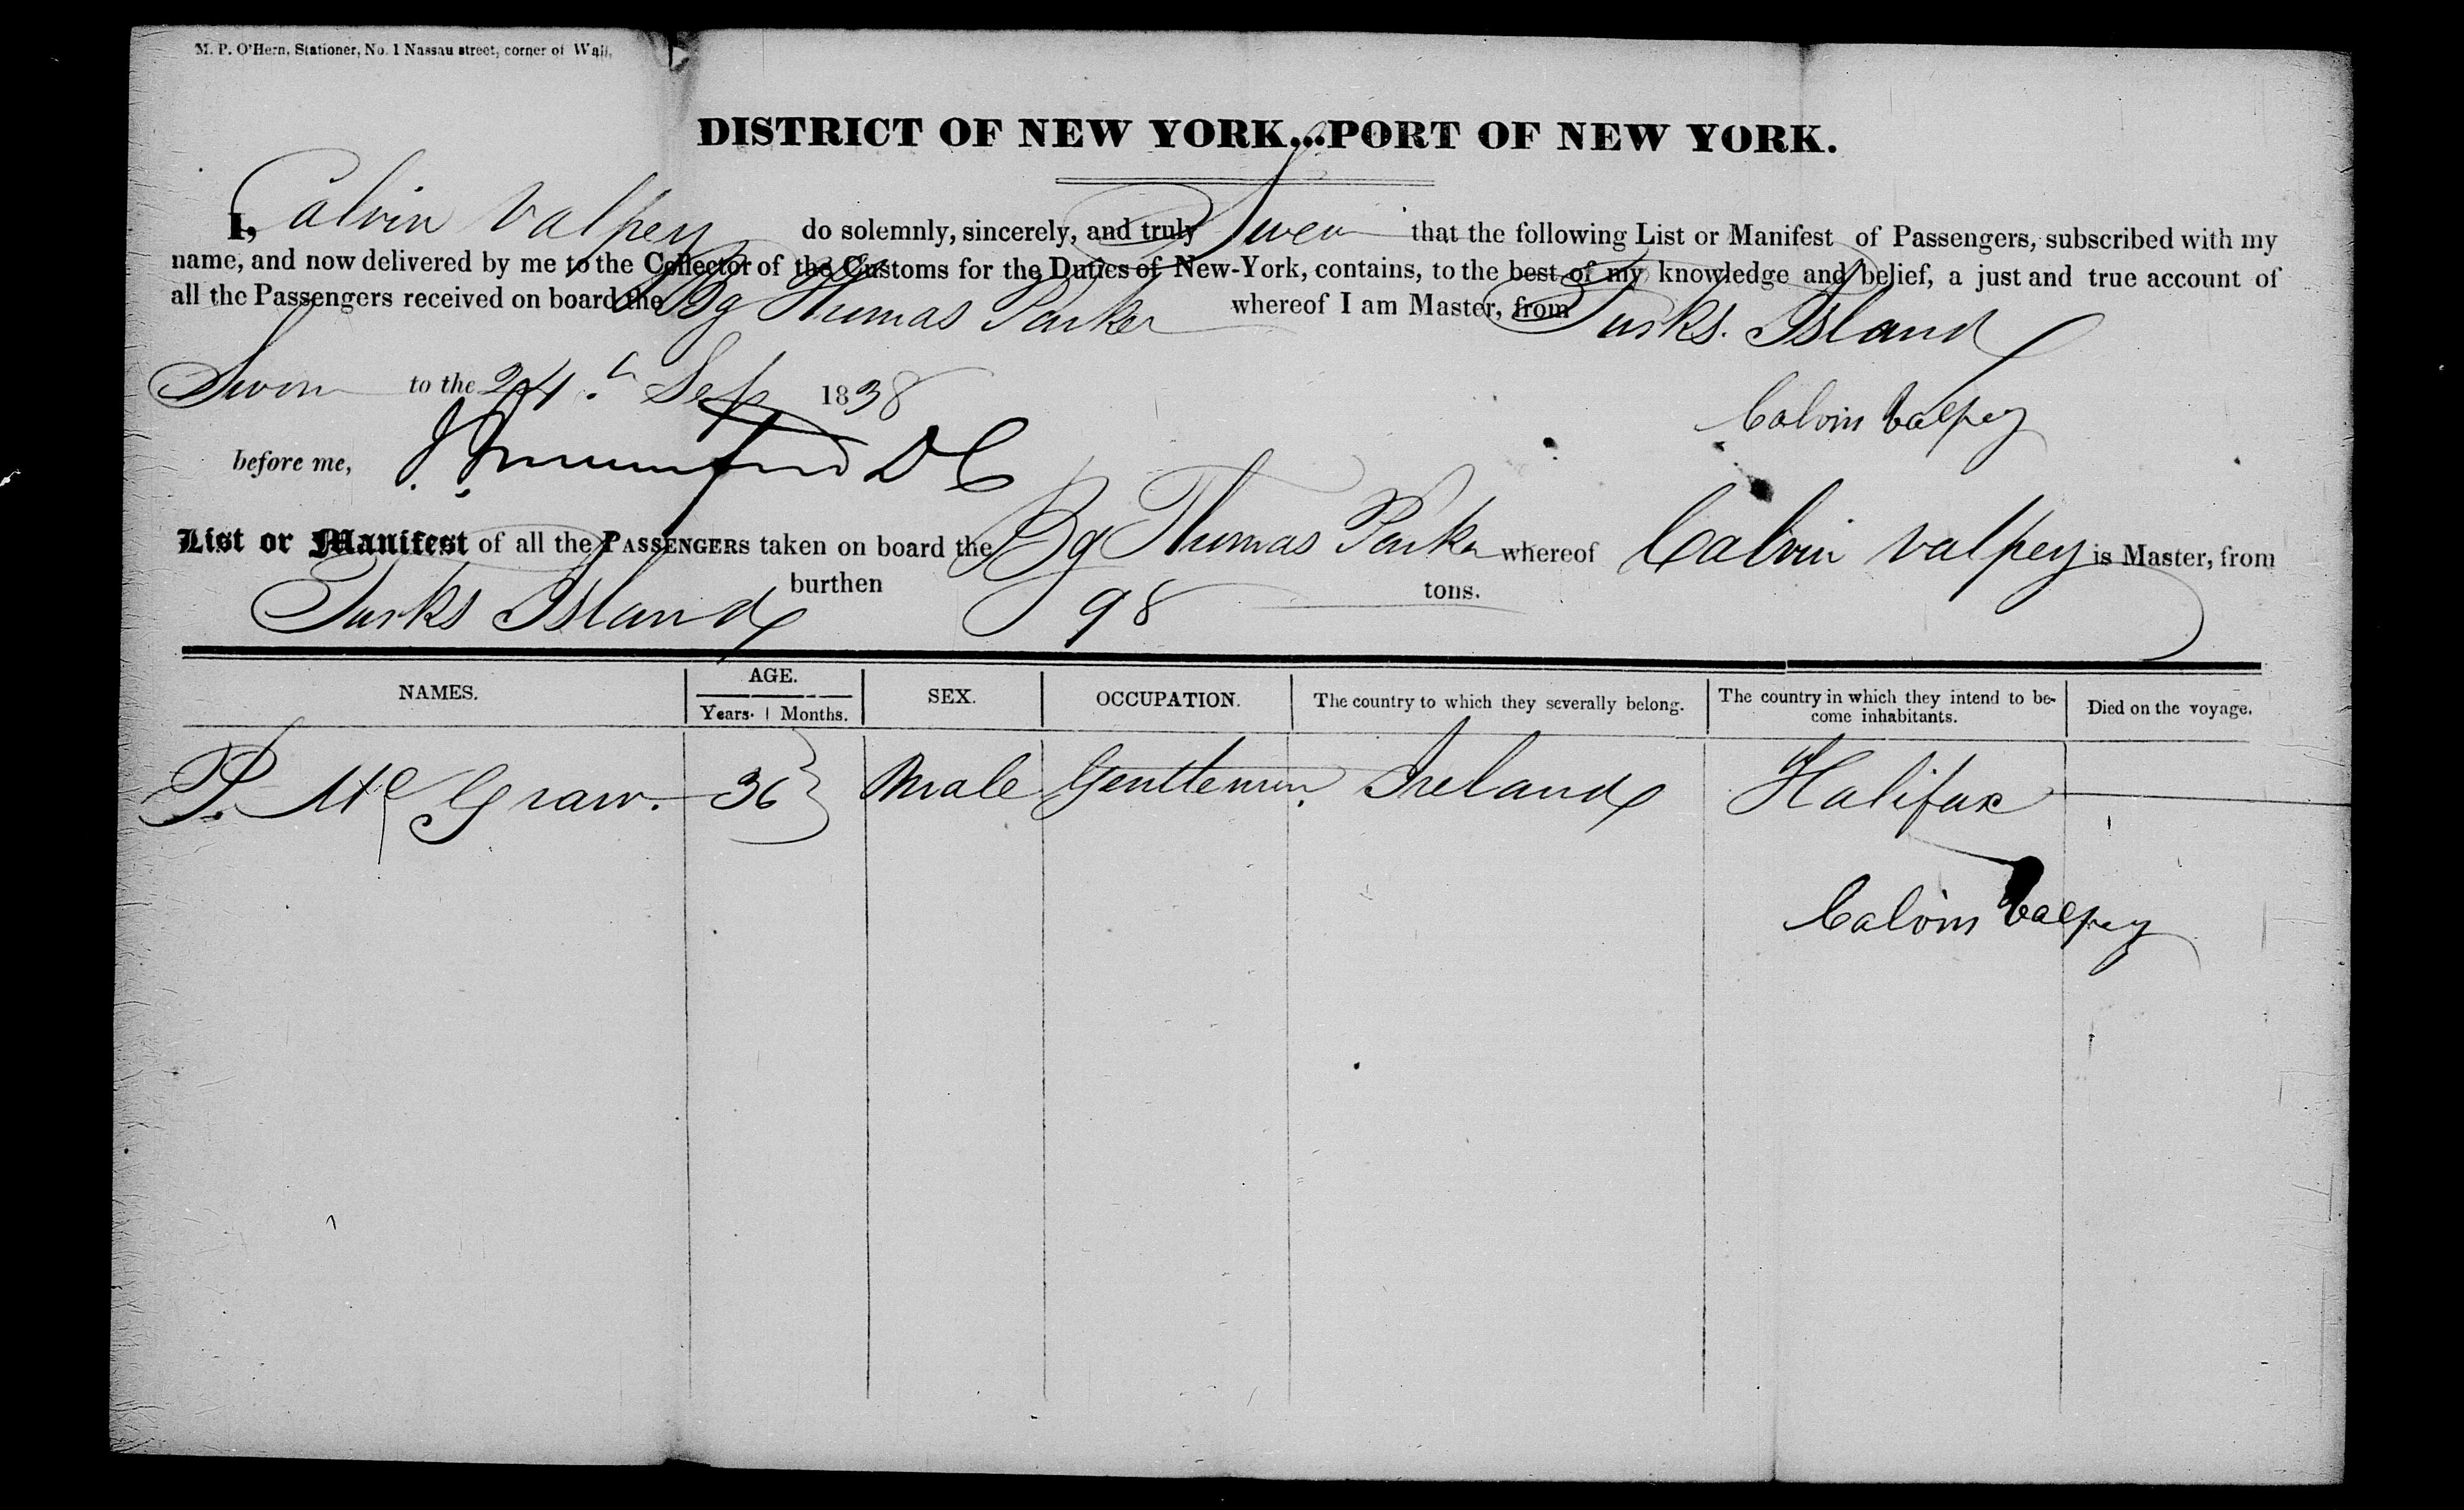 M. P. O'Hern, Stationer, No. 1 Nassau street, corner of Wall.
DISTRICT OF NEW YORK...PORT OF NEW YORK.
I, Calvin Valpey do solemnly, sincerely, and truly Swear that the following List or Manifest of Passengers, subscribed with my
name, and now delivered by me to the Collector of the Customs for the Duties of New-York, contains, to the best of my knowledge and belief, a just and true account of
all the Passengers received on board the Bg Thomas Parker whereof I am Master, from Turks Island
Sworn to the 24th Sep 1838
Calvin Valpey
before me, J. Mumford D C
List or Manifest of all the PASSENGERS taken on board the Bg Thomas Parker whereof Calvin Valpey is Master, from
Turks Island burthen 98 tons.
NAMES. AGE. Years. Months. SEX. OCCUPATION. The country to which they severally belong. The country in which they intend to be-
come inhabitants. Died on the voyage.
P. McGraw. 36 Male Gentleman. Ireland Halifax
Calvin Valpey